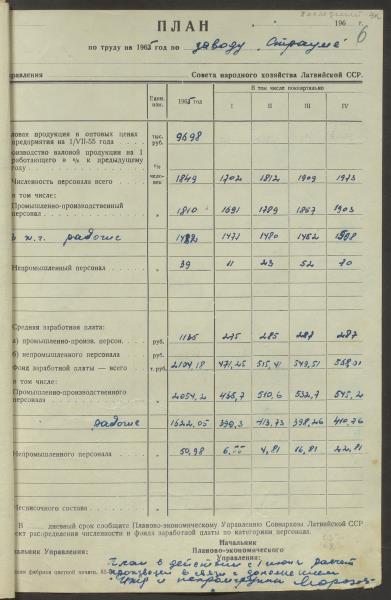 6
ПЛАН
196 г.
по труду на 1965 год по заводу „Страуме"
правления Совета народного хозяйства Латвийской ССР.
Един. изм. 1965 год В том числе поквартально
I II III IV
ловая продукция в оптовых ценах
предприятия на 1/VII-55 года тыс. руб. 9698
оизводство валовой продукции на 1
работающего в % к предыдущему
году %
Численность персонала всего человек 1849 1702 1812 1909 1973
в том числе:
Промышленно-производственный
персонал „ 1810 1691 1789 1857 1903
в т.ч. рабочие 1471 1480 1452
Непромышленный персонал „ 39 11 23 52 70
Средняя заработная плата:
а) промышленно-произв. персон. руб. 1135 275 285 287 287
б) непромышленного персонала руб.
Фонд заработной платы — всего т. руб. 2104,18 471,25 515,41 549,51
в том числе:
Промышленно-производственного
персонала „ 2054,2 510,6 532,7 545,2
рабочие 1622,05 413,73 398,26 410,76
Непромышленного персонала „ 50,98 4,81 16,81 22,81
Несписочного состава „
В дневный срок сообщите Планово-экономическому Управлению Совнархоза Латвийской ССР
ект распределения численности и фонда заработной платы по категориям персонала.
Начальник
чальник Управления: Планово-экономического
Управления:
План в действии с
в связи с дополнением